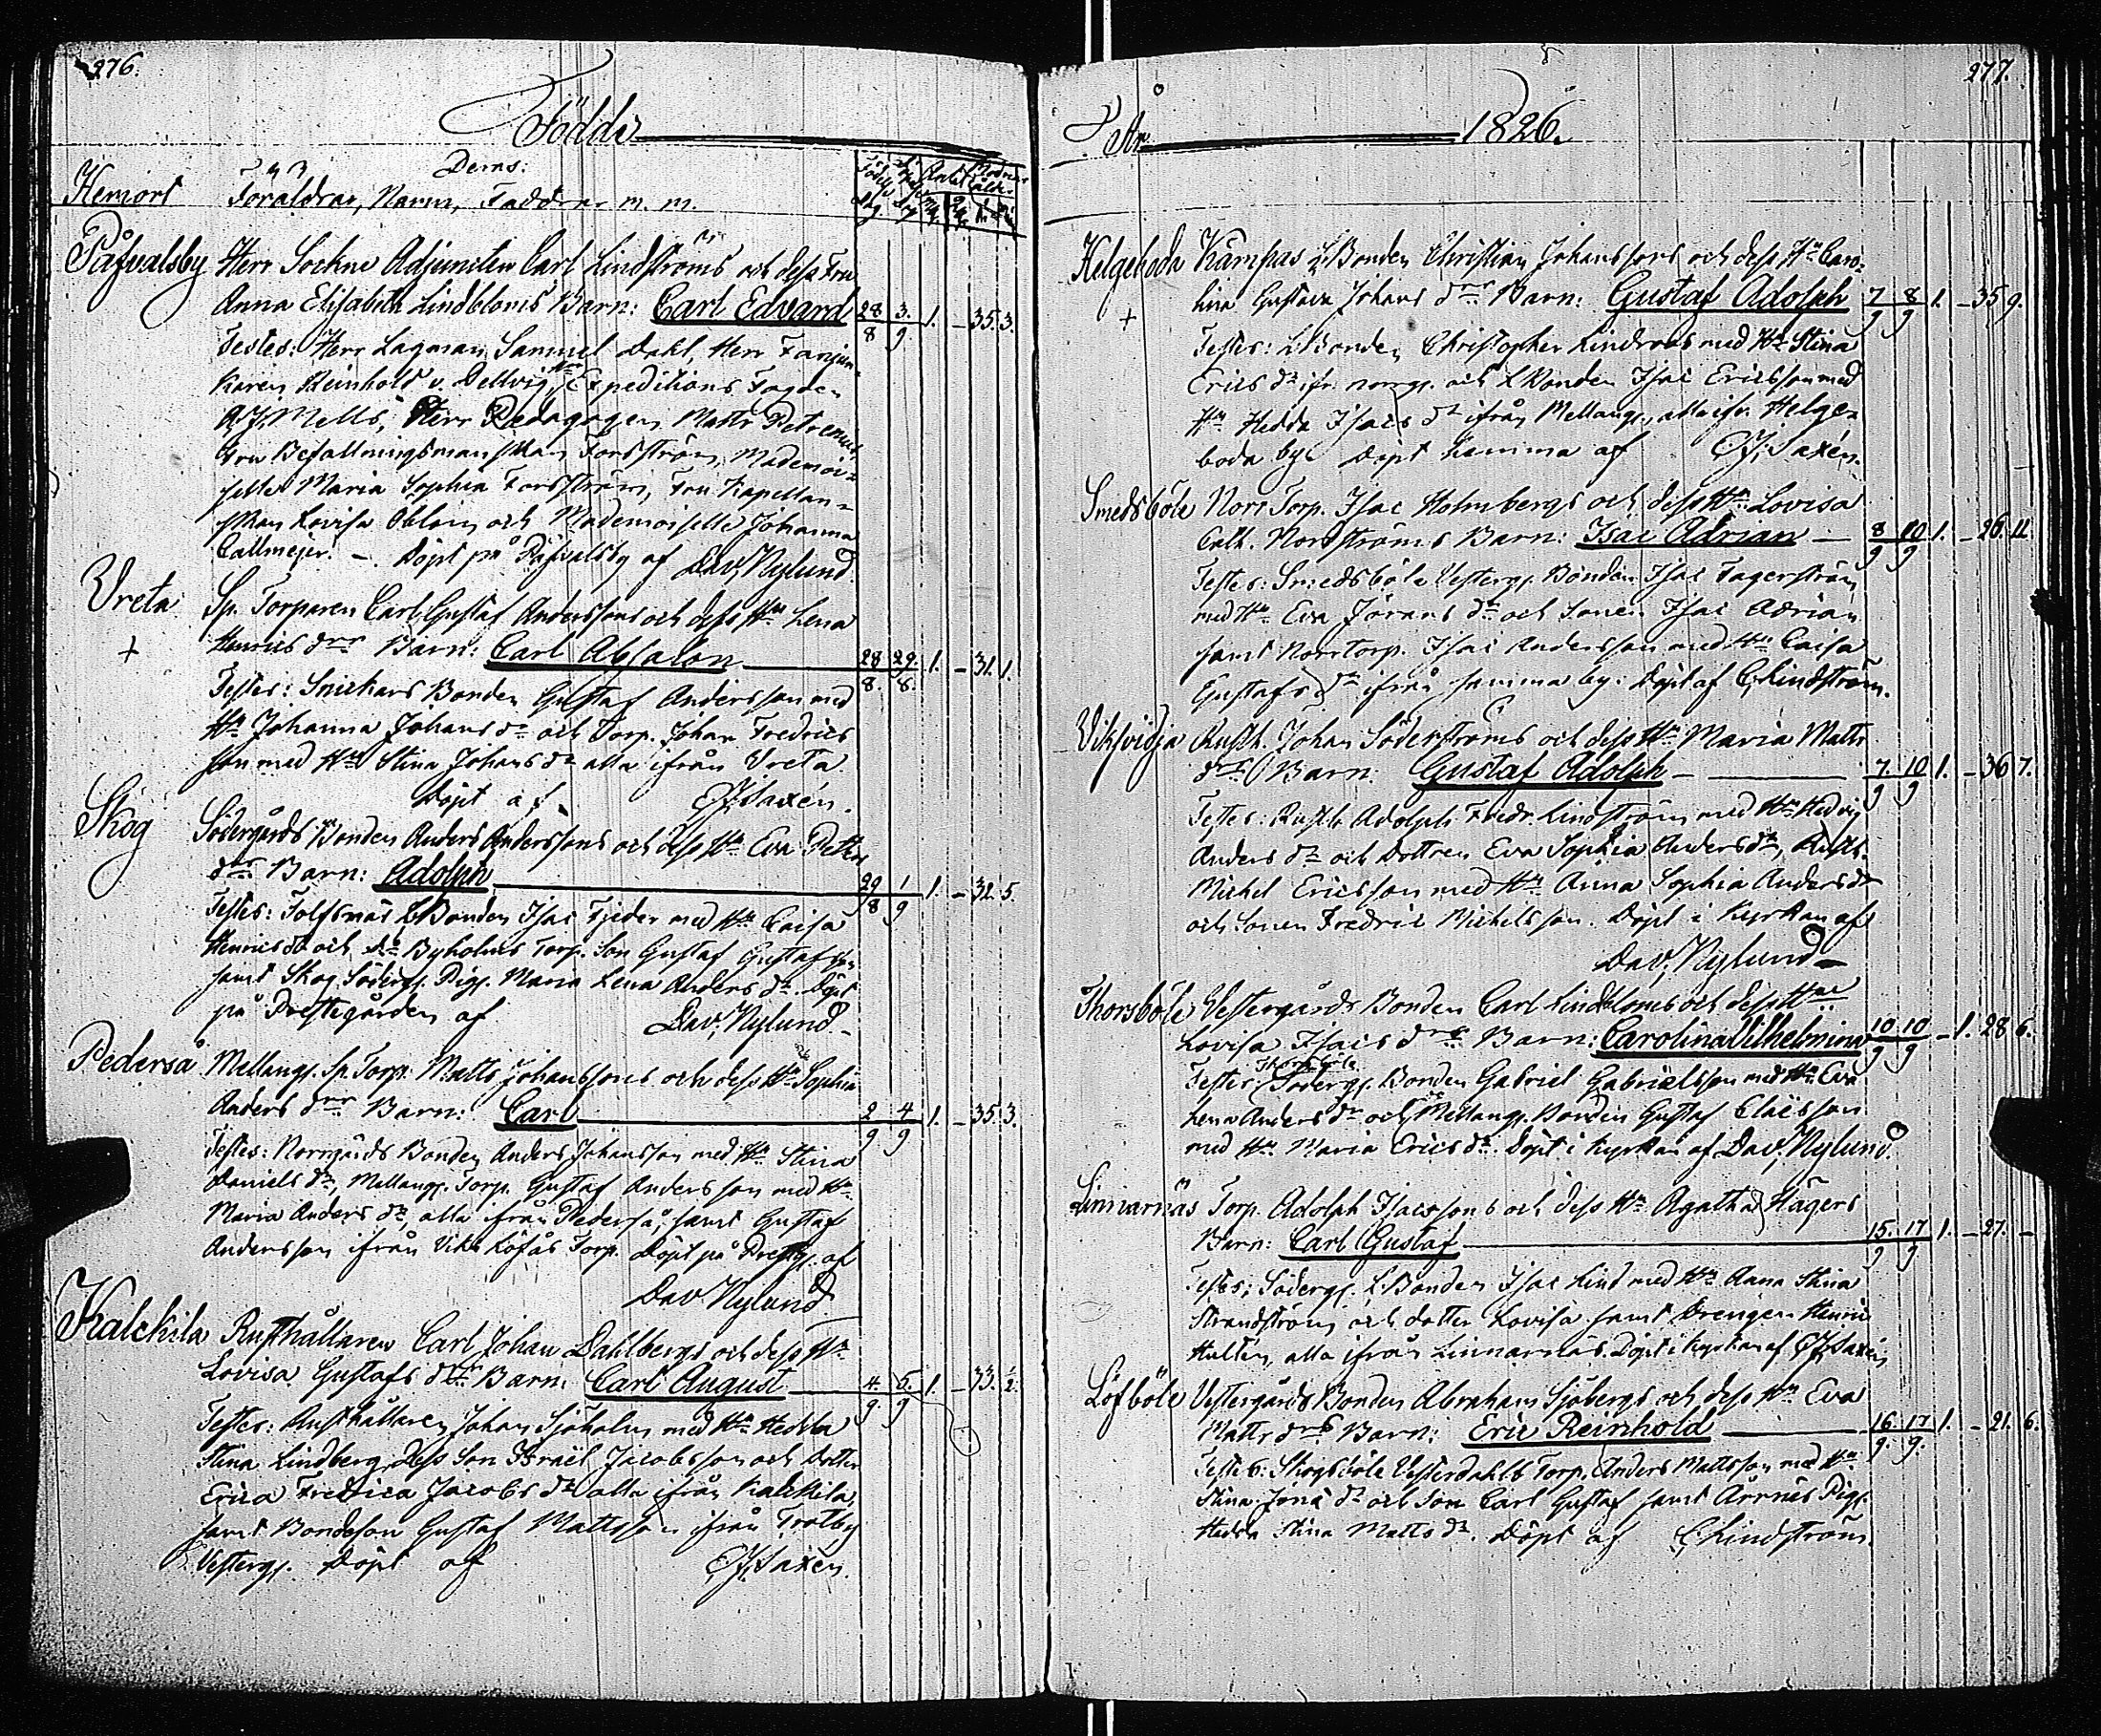 276.
Födde
Deras:
Hemort Föräldrar, Namn, Faddrar m. m.
Födelse Dag Antal Modrens ålder
Påfvalsby Herr Sockne Adjuncten Carl Lindströms och dess Fru
Anna Elisabeth Lindbloms Barn: Carl Edvard 28/8 3./9 1. - 35. 3.
Testes: Herr Lagman Samuel Dahl, Herr Fanjun-
karen Reinhold v. Dellvig, Expeditions Fogden
A. J. Mells, Herr Pedagogen Matts Petrenius
Fru Befallningsmanskan Forsström, Mademoi-
selle Maria Sophia Forsström, Fru Kapellan-
skan Lovisa Oblom och Mademoiselle Johanna
Callmejer. - Döpt på Påfvalsby af Dav. Nylund
Vreta Sp. Torparen Carl Gustaf Anderssons och dess Hu Lena
+ Henrics drs Barn: Carl Absalon 28/8. 29./8. 1. - 31. 1.
Testes: Snickars Bonden Gustaf Andersson med
Hu Johanna Johans dr och Torp. Johan Fredrics
son med Hu Stina Johans dr alla ifrån Vreta
Döpt af CJ Saxén.
Skog Södergårds Bonden Anders Anderssons och dess Hu Eva Petters
drs Barn: Adolph 29/8 1/9 1. - 32. 5.
Testes: Tolfsnäs L Bonden Isac Fjeder med Hu Caisa
Henrics dr och Byholms Torp. Son Gustaf Gustafsson
samt Skog Söderg. Pig. Maria Lena Anders dr. Döpt
på Prestegården af Dav. Nylund
Pederså Mellang. Sp. Torp. Matts Johanssons och dess Hu Sophia
Anders drs Barn: Carl 2/9 4/9 1. - 35. 3.
Testes: Norrgårds Bonden Anders Johansson med Hu Stina
Daniels dr, Mellang. Torp. Gustaf Andersson med Hu
Maria Anders dr, alla ifrån Pederså, samt Gustaf
Andersson ifrån Viks Löfås Torp. Döpt på Presteg. af
Dav. Nylund
Kalckila Rusthållaren Carl Johan Dahlbergs och dess Hu
Lovisa Gustafs drs Barn: Carl August 4./9 5./9 1. - 33. 2.
Testes: Rusthållaren Johan Sjöholm med Hu Hedda
Stina Lindberg, dess Son Israël Jacobsson och Dotter
Erica Fredrica Jacobs dr alla ifrån Kalckila,
samt Bondeson Gustaf Mattsson ifrån Trotby
Vesterg. Döpt af CJ Saxén.
277.
År 1826.
Helgeboda Kämpas L Bonden Christian Johanssons och dess Hu Caro-
+ lina Gustava Johans drs Barn: Gustaf Adolph 7/9 8/9 1. - 35 9.
Testes: L Bonden Christopher Lindroos med Hu Stina
Erics dr ifr. norrg. och L Bonden Isac Ericsson med
Hu Hedda Isacs dr ifrån Mellang., alla ifr. Helge-
boda by. Döpt hemma af CJ Saxén.
Smedsböle Norr Torp. Isac Holmbergs och dess Hu Lovisa
Cath. Nordströms Barn: Isac Adrian 8/9 10/9 1. - 26. 11.
Testes: Smedsböle Vesterg. Bonden Isac Fagerström
med Hu Eva Jörans dr och Sonen Isac Adrian
samt Norrtorp. Isac Andersson med Hu Caisa
Gustafs dr ifrån samma by: Döpt af C. Lindström.
Viksvidja Rusth. Johan Söderströms och dess Hu Maria Matts
drs Barn: Gustaf Adolph 7./9 10/9 1. - 36 7.
Testes: Rusth. Adolph Fredr. Lindström med Hu Hedvig
Anders dr och Dottren Eva Sophia Anders dr, Rusth.
Michel Ericsson med Hu Anna Sophia Anders dr
och Sonen Fredric Michelsson. Döpt i Kyrkan af
Dav. Nylund
Thorsböle Vestergårds Bonden Carl Lindbloms och dess Hu
Lovisa Isacs drs Barn: Carolina Vilhelmina 10/9 10/9 - 1. 28 6.
Testes: Thorsböle Söderg. Bonden Gabriel Gabrielsson med Hu Eva
Lena Anders dr och Mellang. Bonden Gustaf Claësson
med Hu Maria Erics dr. Döpt i Kyrkan af Dav. Nylund.
Linnarnäs Torp. Adolph Isacssons och dess Hu Agatha Hägers
Barn: Carl Gustaf 15./9 17/9 1. - 27. -
Testes: Söderg. L. Bonden Isac Lind med Hu Anna Stina
Strandström och dotter Lovisa samt Drengen Henric
Hultén, alla ifrån Linnarnäs. Döpt i Kyrkan af CJ Saxén
Löfböle Vestergårds Bonden Abraham Sjöbergs och dess Hu Eva
Matts drs Barn: Eric Reinhold 16./9. 17/9. 1. - 21. 6.
Testes: Skogsböle Vesterdahls Torp. Anders Mattsson med Hu
Stina Jona dr och Son Carl Gustaf samt Årrnäs Pig.
Hedda Stina Matts dr. Döpt af C. Lindström.